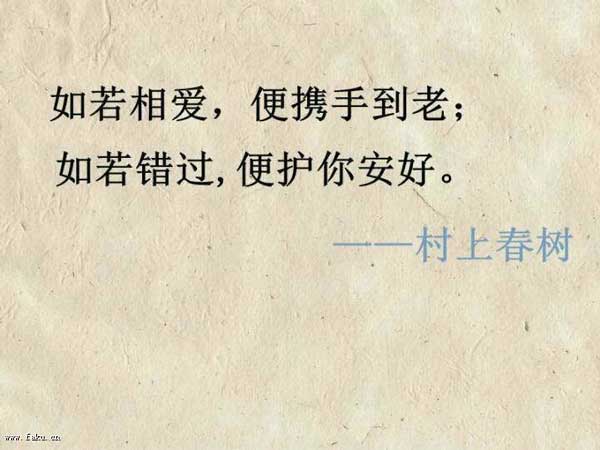 如若相爱，便携手到老；
如若错过，便护你安好。
——村上春树
www.faku.cn